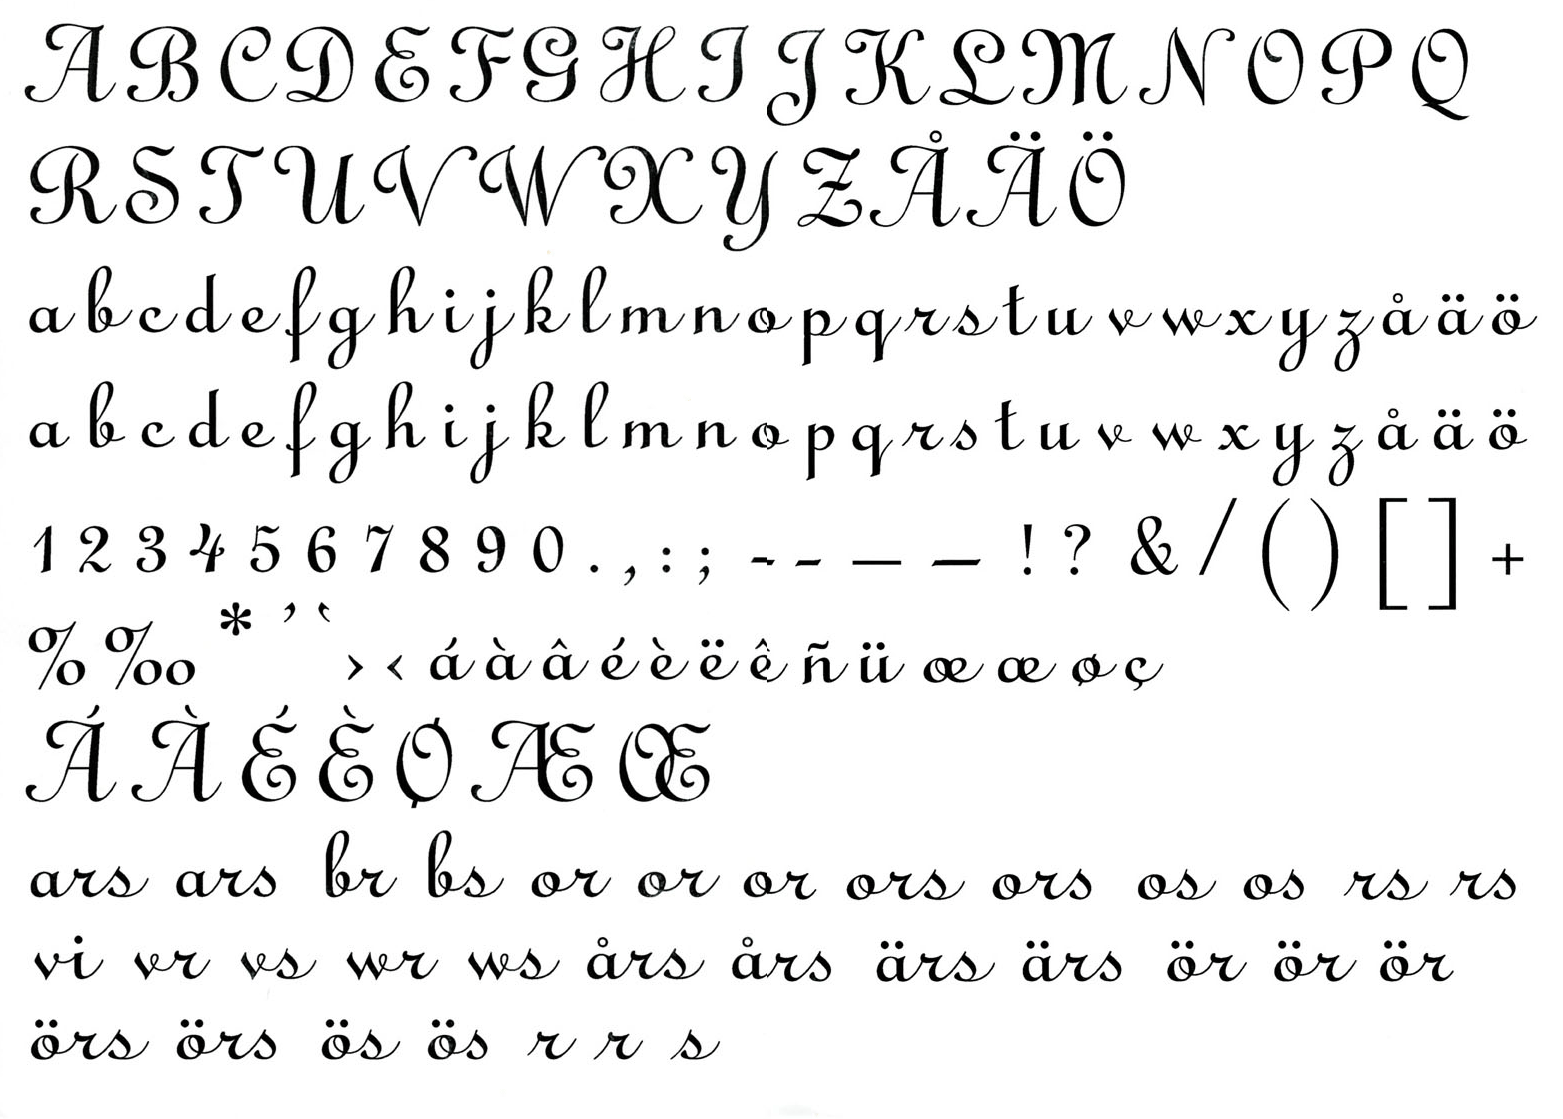 A B C D E F G H I J K L M N O P Q
R S T U V W X Y Z Å Ä Ö
a b c d e f g h i j k l m n o p q r s t u v w x y z å ä ö
a b c d e f g h i j k l m n o p q r s t u v w x y z å ä ö
1 2 3 4 5 6 7 8 9 0 . , : ; - - — — ! ? & / ( ) [ ] +
% ‰ * ’ ‛ › ‹ á à â é è ë ê ñ ü œ æ ø ç
Á À É È Ø Æ Œ
ars ars br bs or or or ors ors os os rs rs
vi vr vs wr ws års års ärs ärs ör ör ör
örs örs ös ös r r s